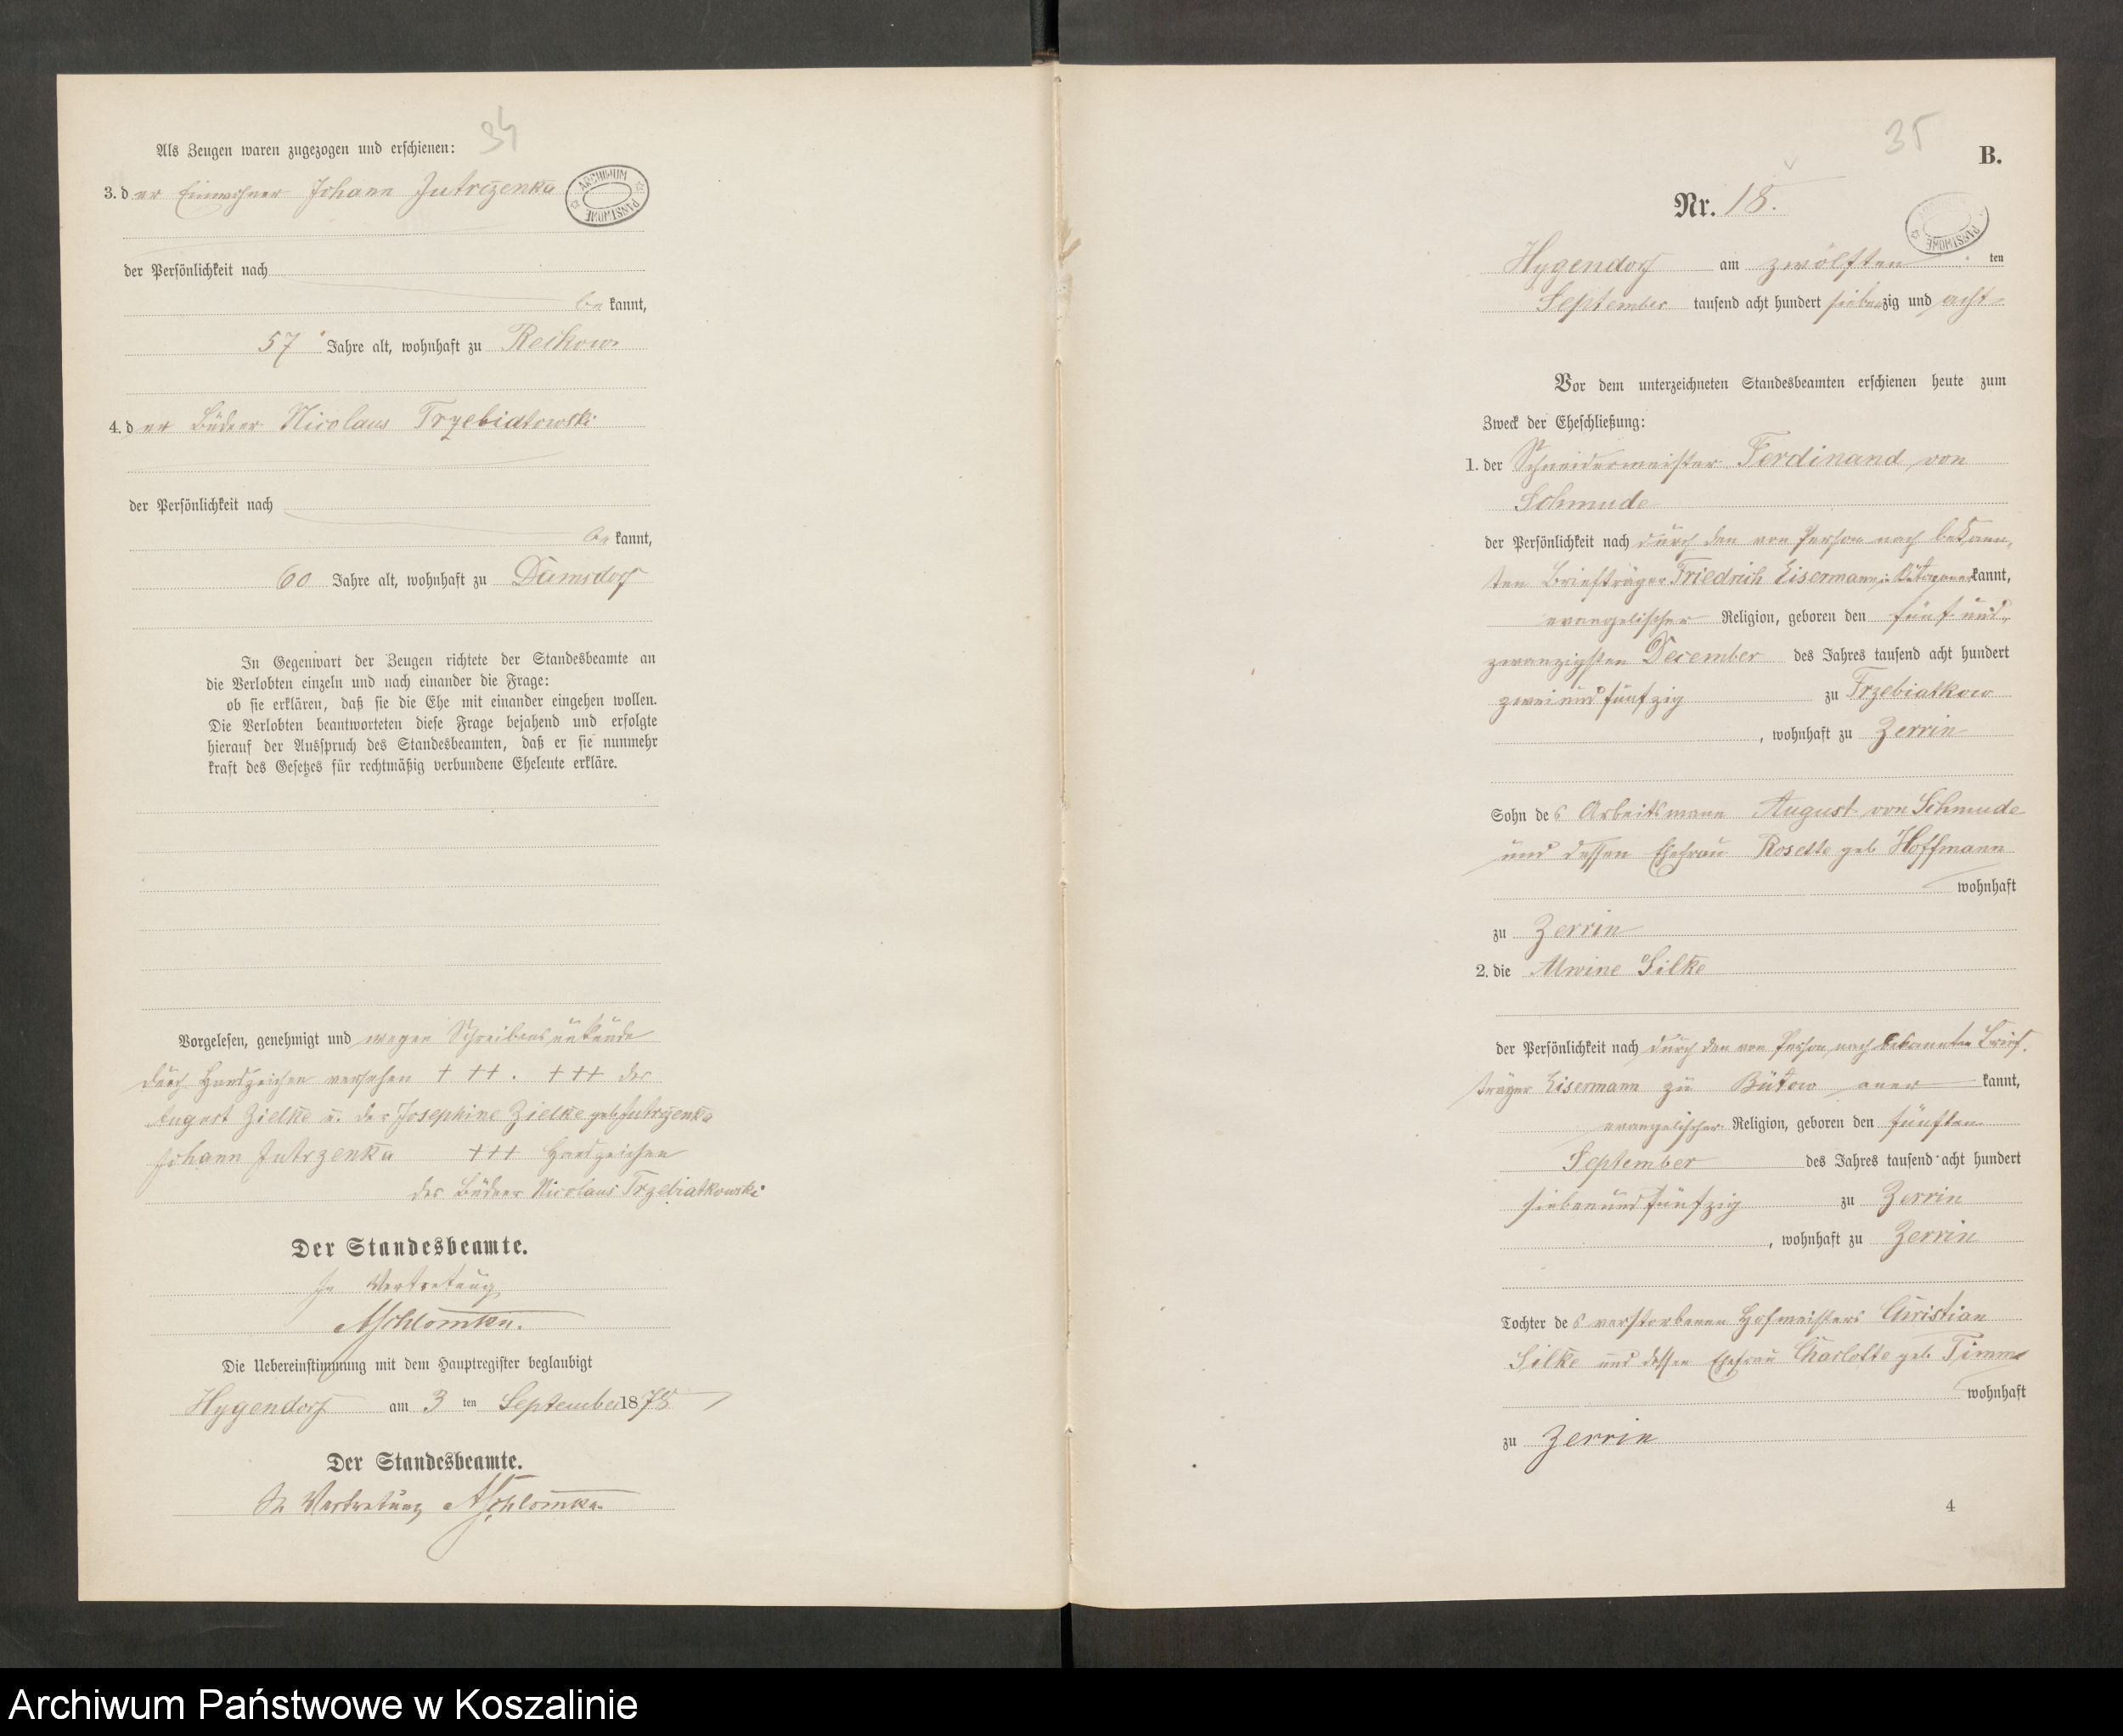 34
Als Zeugen waren zugezogen und erschienen:
3. der Einwohner Johann Jutrzenka
ARCHIWUM PAŃSTWOWE
der Persönlichkeit nach
be kannt,
57 Jahre alt, wohnhaft zu Reckow
4. der Büdner Nicolaus Trzebiatowski
der Persönlichkeit nach
be kannt,
60 Jahre alt, wohnhaft zu Damsdorf
In Gegenwart der Zeugen richtete der Standesbeamte an
die Verlobten einzeln und nach einander die Frage:
ob sie erklären, daß sie die Ehe mit einander eingehen wollen.
Die Verlobten beantworteten diese Frage bejahend und erfolgte
hierauf der Ausspruch des Standesbeamten, daß er sie nunmehr
kraft des Gesetzes für rechtmäßig verbundene Eheleute erkläre.
Vorgelesen, genehmigt und wegen Schreibensunkunde
durch Handzeichen versehen + ++ . +++ des
August Zielke u. der Josephine Zielke geb. Jutrzenka
Johann Jutrzenka +++ Handzeichen
des Büdner Nicolaus Trzebiatkowski
Der Standesbeamte.
In Vertretung
Die Uebereinstimmung mit dem Hauptregister beglaubigt
Hygendorf am 3 ten September 1878
Der Standesbeamte.
In Vertretung
35
B.
Nr. 18.
PAŃSTWOWE
Hygendorf am zwölften ten
September tausend acht hundert siebenzig und acht
Vor dem unterzeichneten Standesbeamten erschienen heute zum
Zweck der Eheschließung:
1. der Schneidermeister Ferdinand von
Schmude
der Persönlichkeit nach durch den von Person nach bekann-
ten Briefträger Friedrich Eisermann kannt,
evangelischer Religion, geboren den fünf und
zwanzigsten December des Jahres tausend acht hundert
zwei und fünfzig zu Trzebiatkow
, wohnhaft zu Zerrin
Sohn des Arbeitsmann August von Schmude
und dessen Ehefrau Rosette geb Hoffmann
wohnhaft
zu Zerrin
2. die Alwine Silke
der Persönlichkeit nach durch den von Person nach bekannten Brief-
träger Eisermann zu Bütow aner kannt,
evangelischer Religion, geboren den fünften
September des Jahres tausend acht hundert
siebenund fünfzig zu Zerrin
, wohnhaft zu Zerrin
Tochter des verstorbenen Hofmeisters Christian
Silke und dessen Ehefrau Charlotte geb. Timm
wohnhaft
zu Zerrin
4
Archiwum Państwowe w Koszalinie